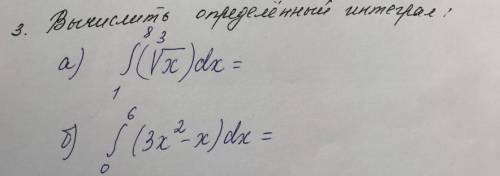 3. Вычислить определённый интеграл:
а) ∫₁⁸(∛x)dx =
б) ∫₀⁶(3x²-x)dx =